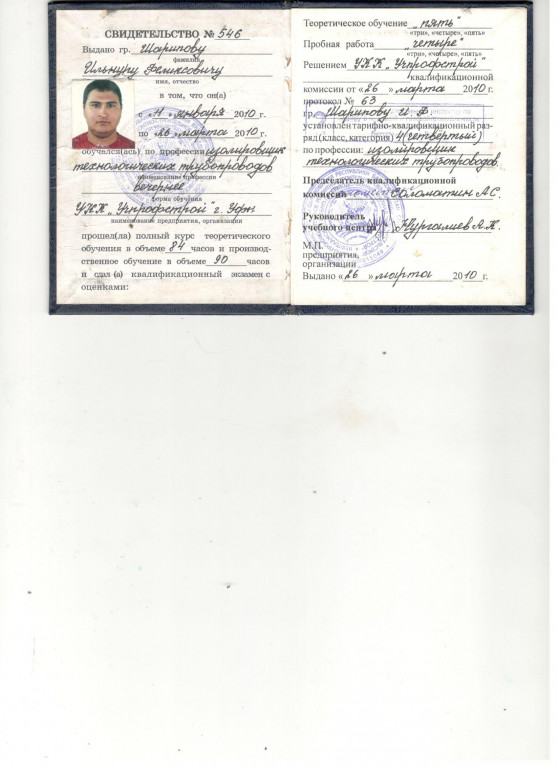 СВИДЕТЕЛЬСТВО № 546
Выдано гр. Шарипову
фамилия
Ильнуру Феликсовичу
имя, отчество
в том, что он(а)
с „11„ января 2010 г.
по „26„ марта 2010 г.
обучался(ась) по профессии изолировщик
технологических трубопроводов
наименование профессии
вечернее
форма обучения
УКК "Учпрофстрой" г. Уфы
наименование предприятия, организации
прошел(ла) полный курс теоретического
обучения в объеме 84 часов и производ-
ственное обучение в объеме 90 часов
и сдал (а) квалификационный экзамен с
оценками:
Теоретическое обучение „пять"
«три», «четыре», «пять»
Пробная работа „четыре"
«три», «четыре», «пять»
Решением УКК "Учпрофстрой"
квалификационной
комиссии от «26 » марта 2010 г.
протокол № 63
гр. Шарипову И. Ф.
установлен тарифно-квалификационный раз-
ряд (класс, категория) 4(четвертый)
по профессии: изолировщик
технологических трубопроводов
Председатель квалификационной
комиссии Соломатин А.С.
Руководитель
учебного центра Нургалиев А.К.
М.П.
предприятия,
организации
Выдано «26 » марта 2010 г.